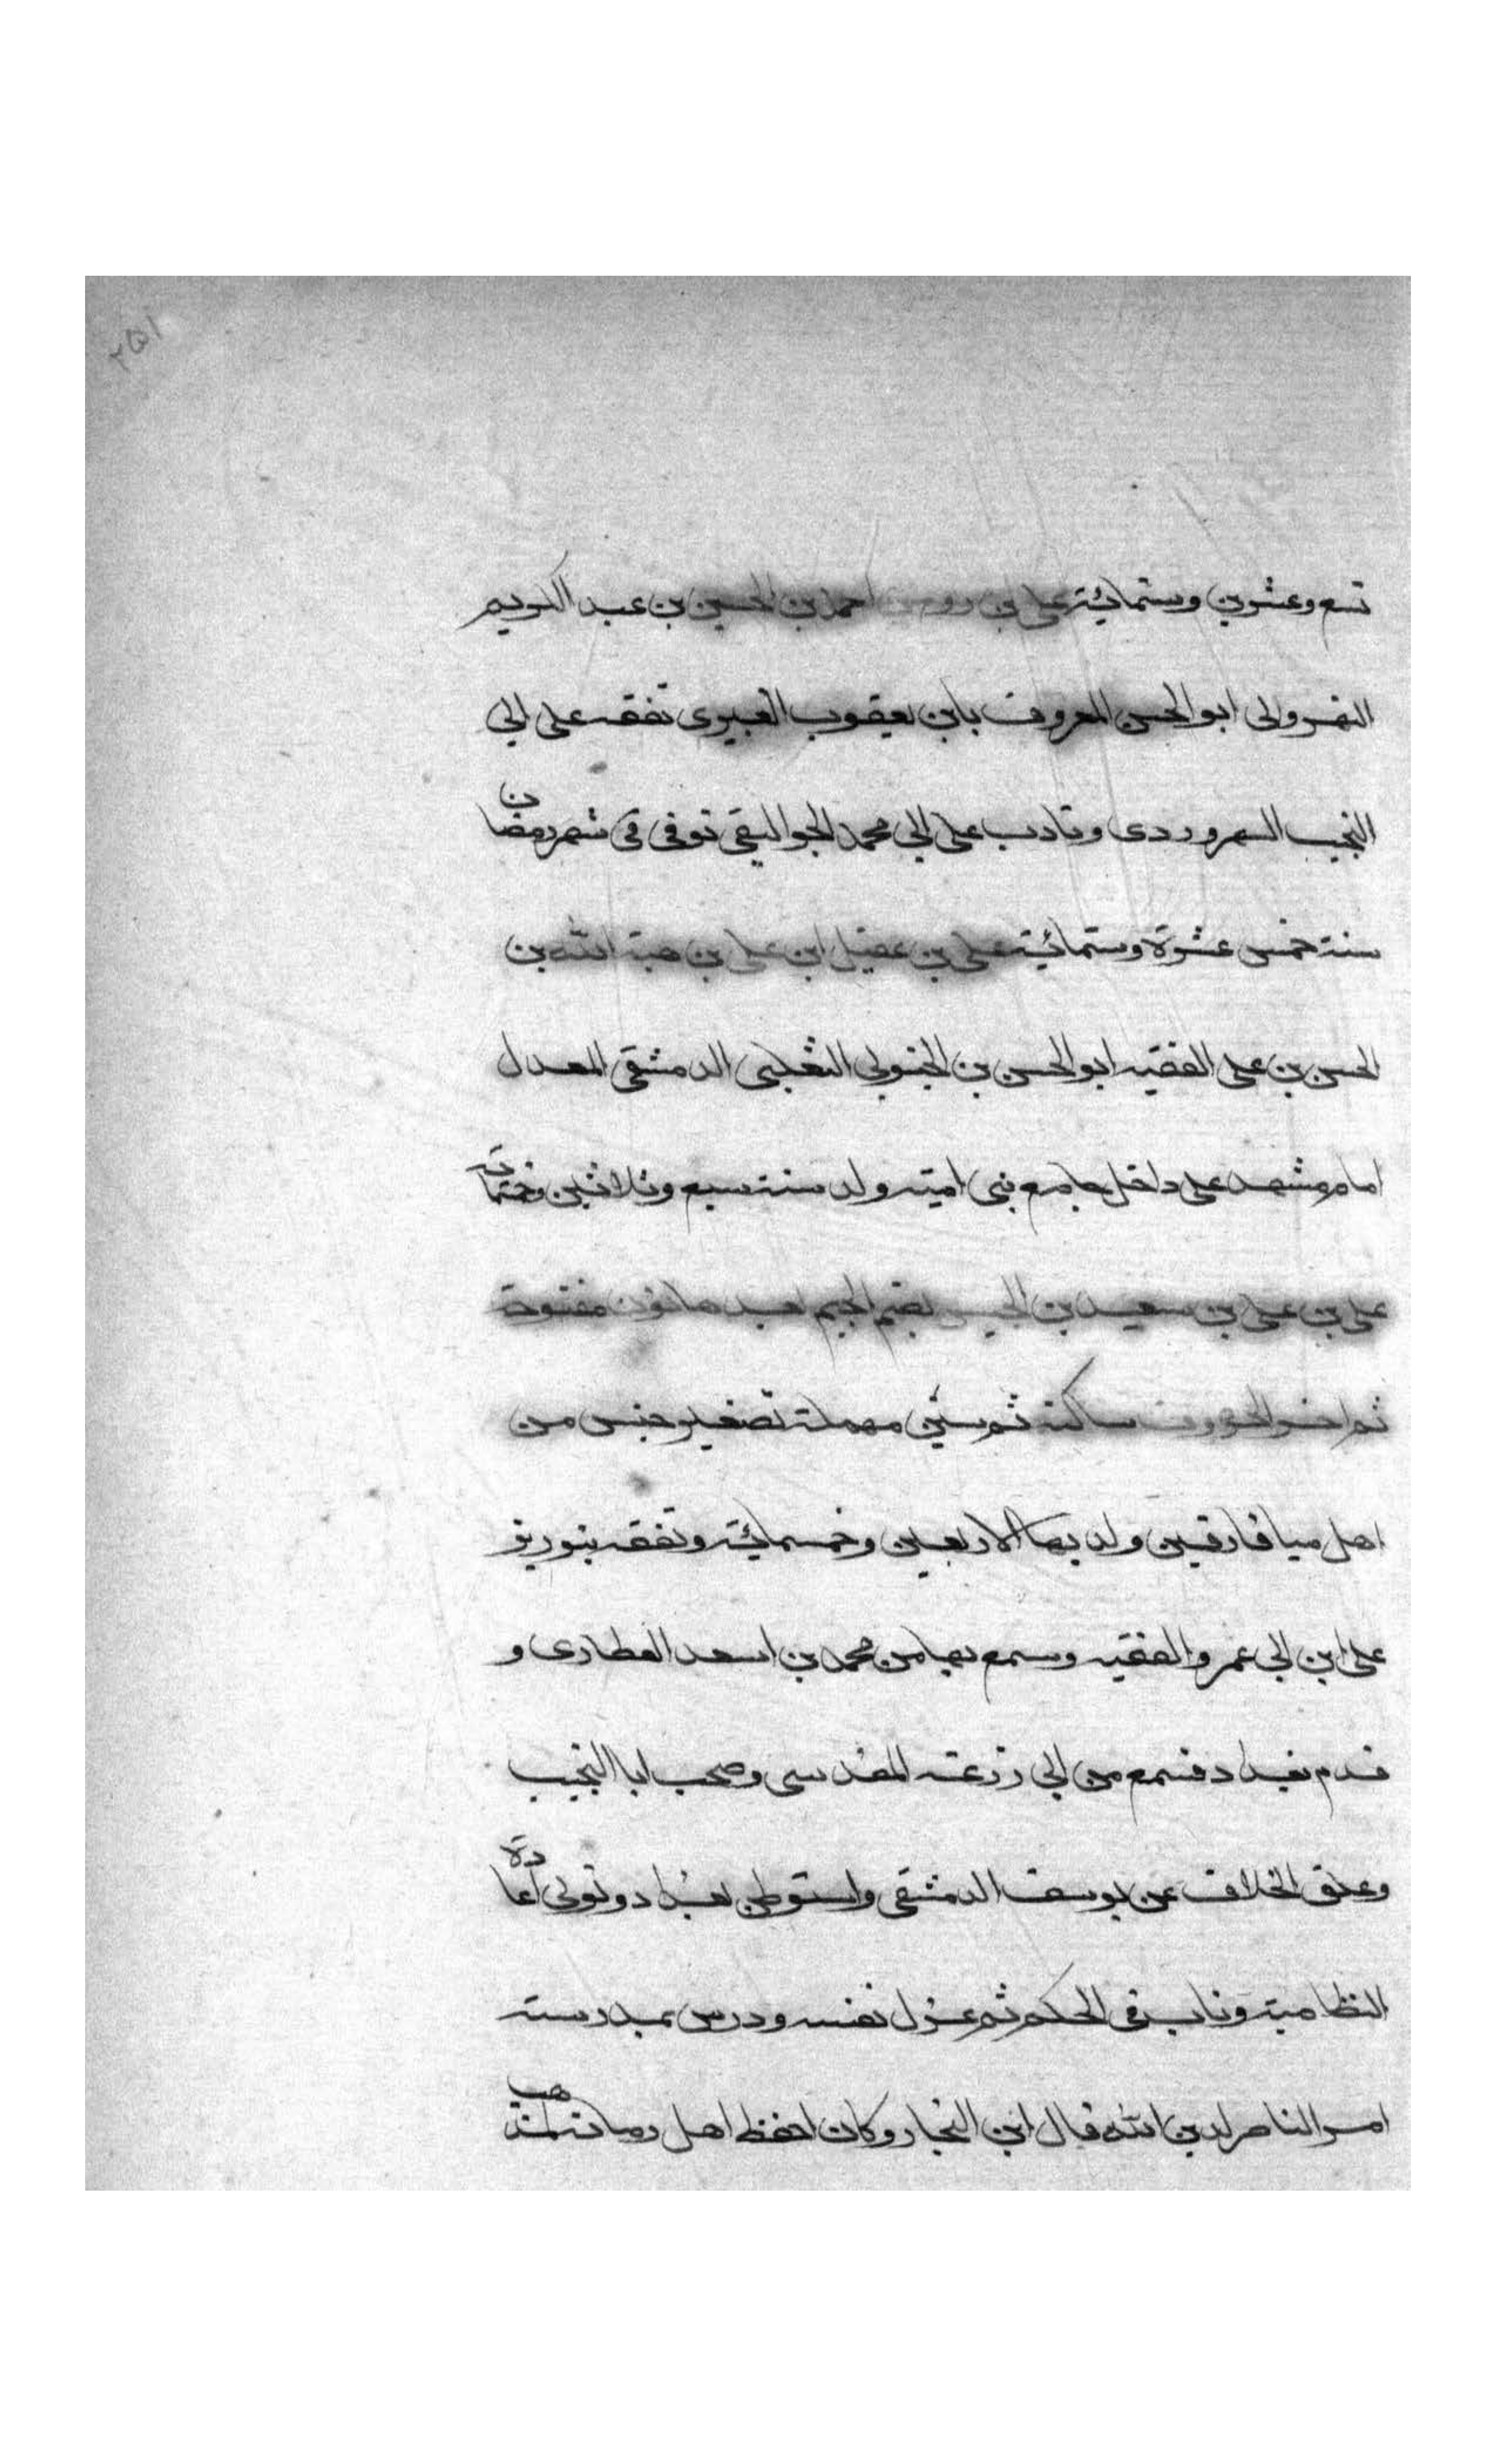 ٢٥١
تسع وعشرين وستمائة علي بن روح بن احمد بن الحسين بن عبد الكريم
النهروالى ابو الحسن المعروف بابن الغبيرى تفقه على ابي
النجيب السهروردى وتادب على ابي محمد الجواليقي توفى فى شهر رمضان
سنة خمس عشرة وستمائة على بن عقيل ابن على بن هبة الله بن
الحسن بن على الفقيه ابو الحسن بن الحبوبي التغلبى الدمشقى المعدل
امام مشهد على داخل جامع بنى امية ولد سنة سبع وثلاثين وخمسماية
على بن على بن سعيد بن الجنيس بضم الجيم بعدها نون مفتوحة
ثم اخر الحروف ساكنة ثم سين مهملة تصغير جنس من
اهل ميافارقين ولد بها الاربعين وخمسمائة وتفقه بتوريز
على ابن ابي عمرو الفقيه وسمع بها من محمد بن اسعد العطارى و
قدم بغداد فسمع من ابي زرعة المقدسى وصحب ابا النجيب
وعلق الخلاف عن يوسف الدمشقى واستوطن بغداد وتولى اعادة
النظامية وناب فى الحكم ثم عزل نفسه ودرس بمدرسة
ام الناصر لدين الله قال ابن النجار وكان احفظ اهل زمانه لمذهب